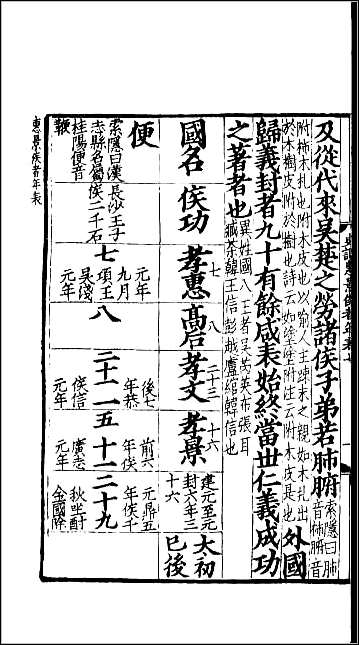 及從代來吳楚之勞諸侯子弟若肺腑索隱曰肺音柿腑音
附柿木札也附木皮也以喻人主疎末之親如木札出
於木樹皮附於樹也詩云如塗塗附注云附木皮是也
外國
歸義封者九十有餘咸表始終當世仁義成功
之著者也異姓國八王者吳芮英布張耳
臧荼韓王信彭越盧綰韓信也
國名
侯功
孝惠七
高后八
孝文二十三
孝景十六
建元至元封六年三十六
太初已後
便
索隱曰漢志縣名屬桂陽便音鞭
長沙王子侯二千石
七
元年九月項王吳淺元年
八
二十二
後七年恭侯信元年
一
五
前六年侯廣志元年
十一
二十九
元鼎五年侯千秋坐酎金國除
惠景侯者年表